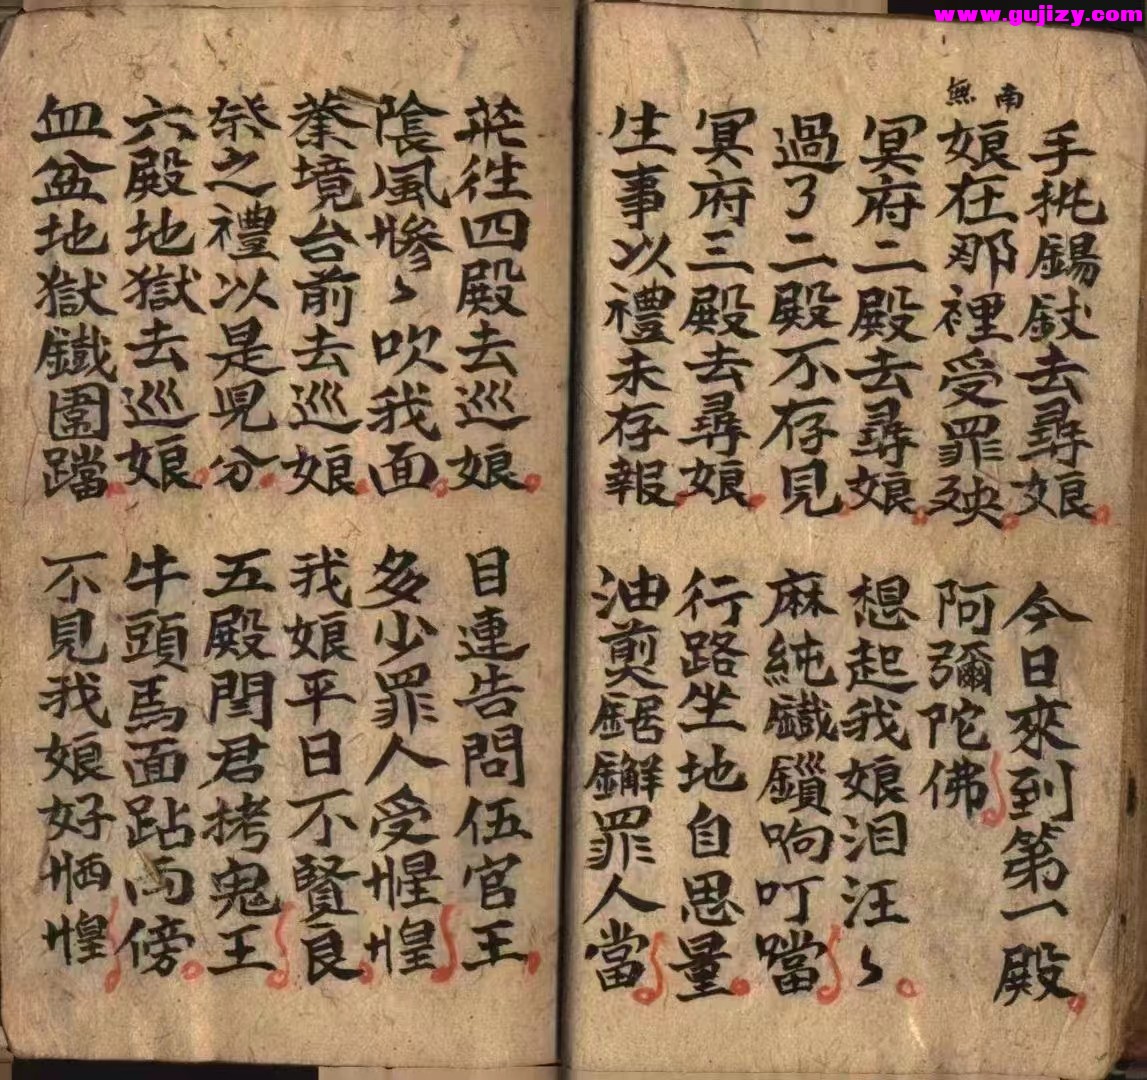 www.gujizy.com
南無
手執錫鈫去尋娘
今日來到第一殿
娘在那裡受罪殃
阿彌陀佛
冥府二殿去尋娘
想起我娘泪汪〻
過了二殿不存見
麻純鐵鎖响叮噹
冥府三殿去尋娘
行路坐地自思量
生事以禮未存報
油煎鋸解罪人當
茫徃四殿去巡娘
目連告問伍官王
陰風慘〻吹我面
多少罪人受惶惶
業境台前去巡娘
我娘平日不賢良
祭之禮以是見分
五殿閆君拷鬼王
六殿地獄去巡娘
牛頭馬面跕両傍
血盆地獄鐵圍蹹
不見我娘好恓惶